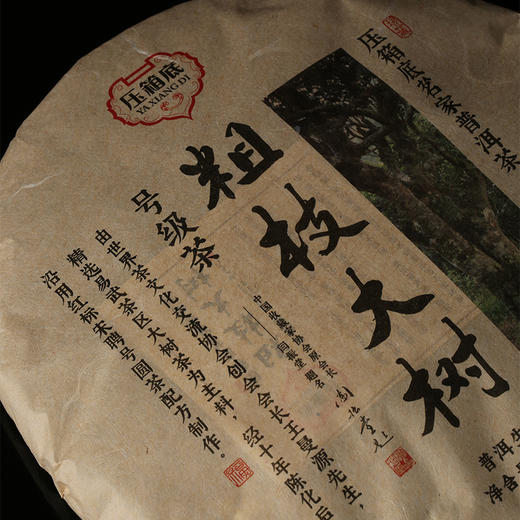 压箱底
YA XIANG DI
压箱底茗家普洱茶
粗枝大树
号级茶
中国收藏家协会原会长
闫振堂 题名
由世界茶文化交流协会创会会长王曼源先生，
精选易武茶区大树茶为主料，经十年陈化后
沿用红标宋聘号圆茶配方制作。
普洱生
净含